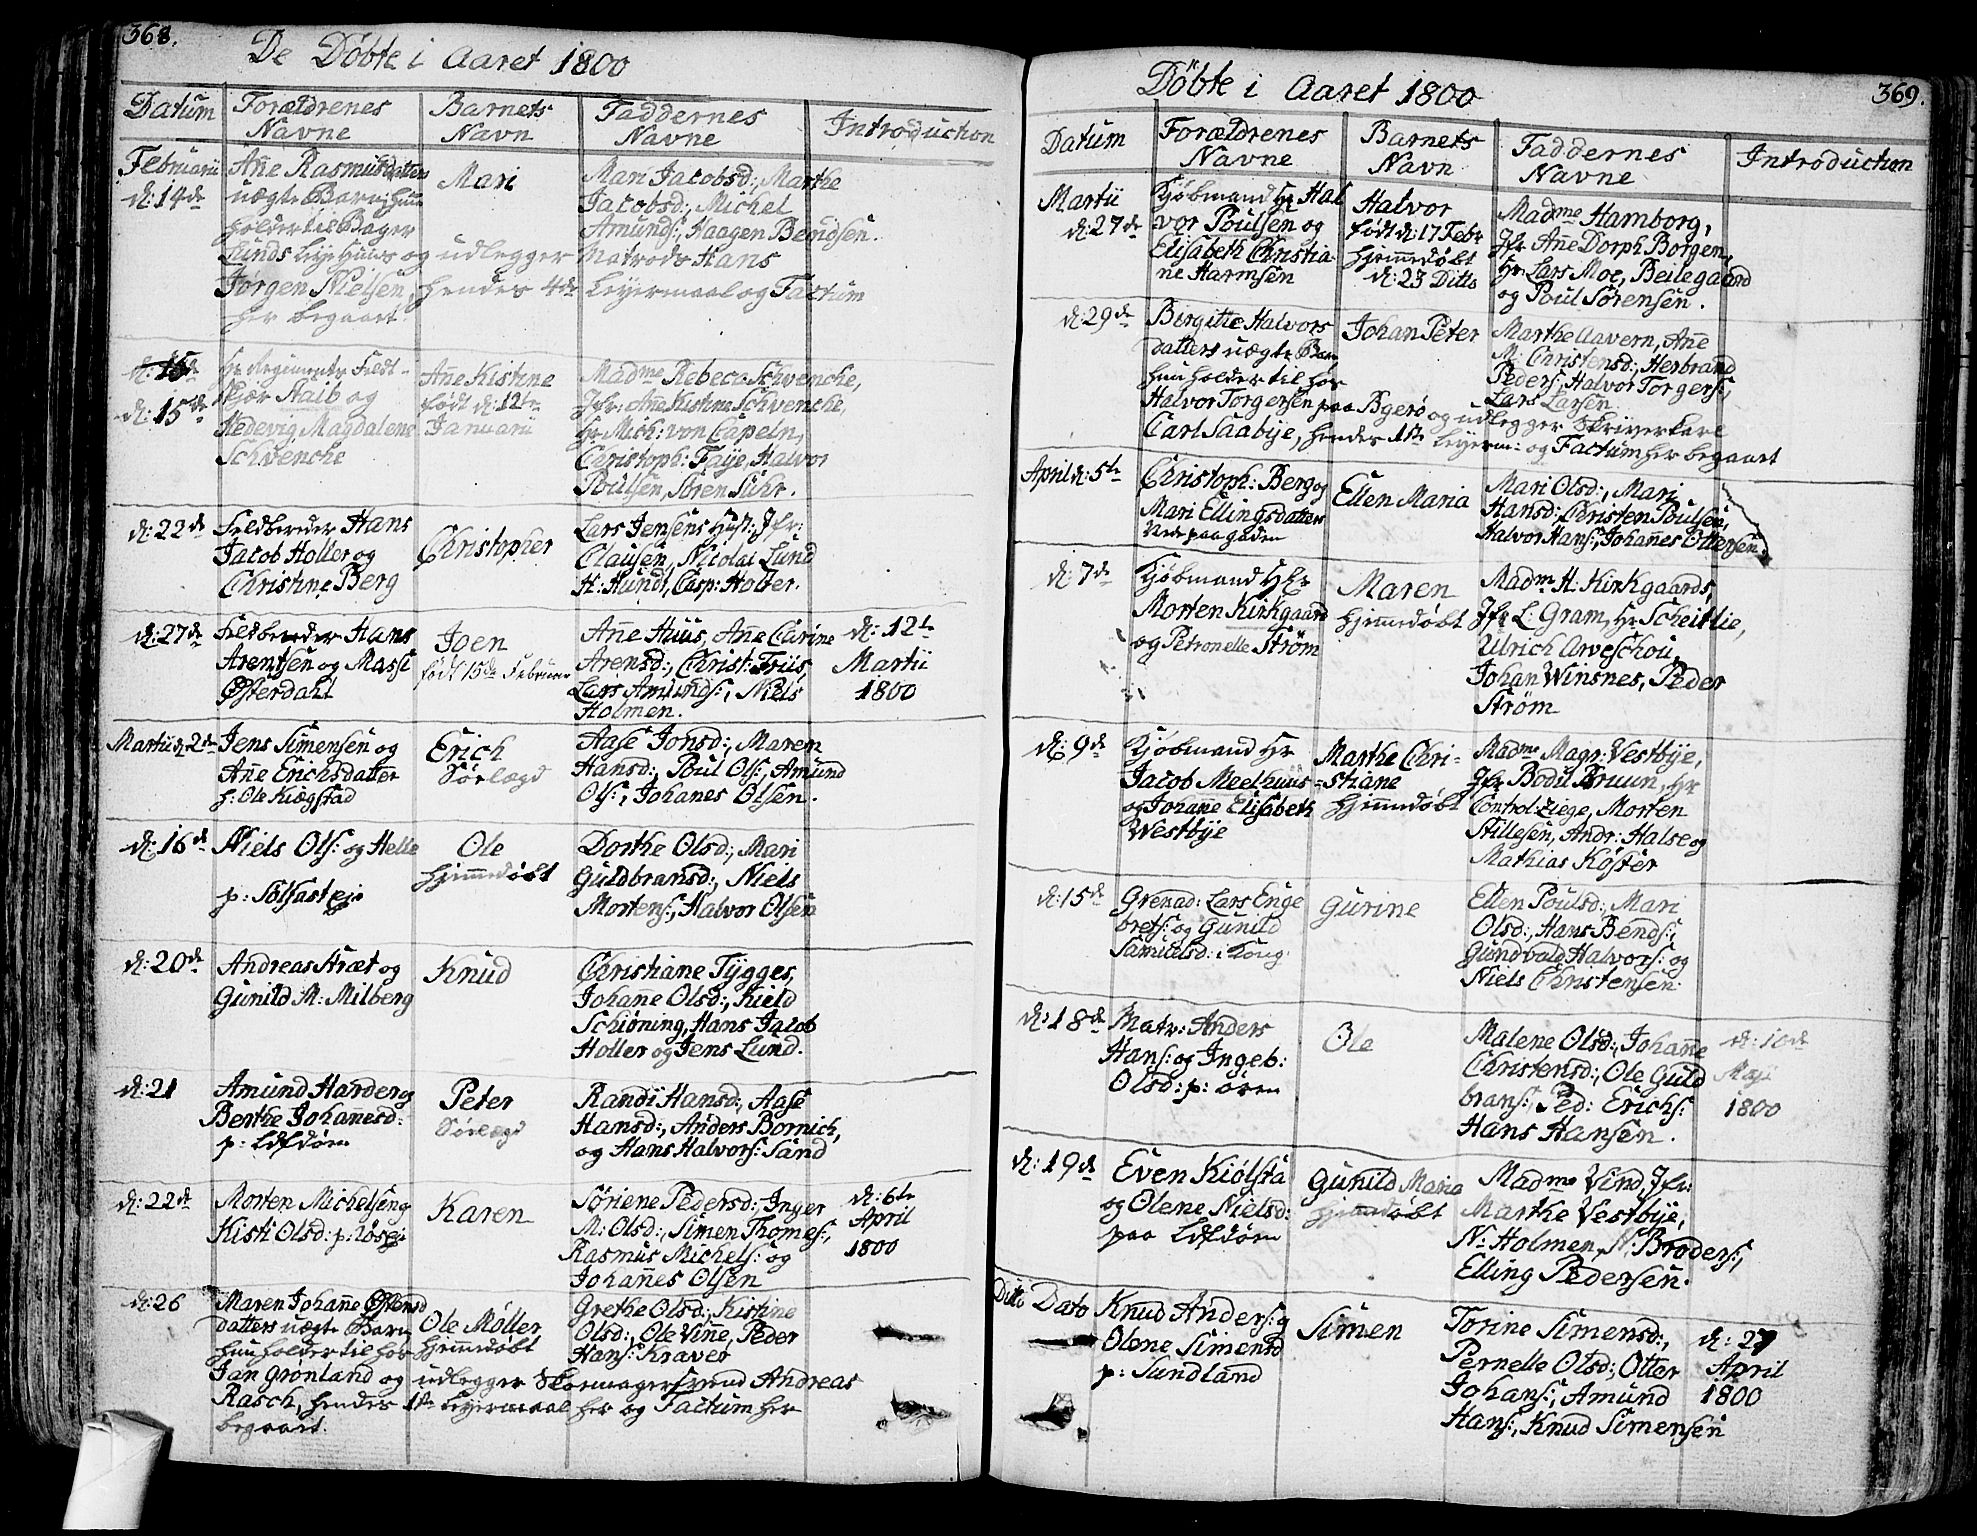 368.
De Döbte i Aaret 1800
Datum
Forældrenes
Navne
Barnets
Navn
Faddernes
Navne
Introduction
Februarii
d: 14de
Añe Rasmusdatters
uægte Barn, hun
holder til Bager
Lunds Leye Huus og udlegger Matrods Hans
Jørgen Nielsen, hendes 4de Leyermaal og Factum
her begaaet.
Mari
Mari Jacobsd:, Marthe
Jacobsd:, Michel
Amunds:, Haagen Bendsen.
d: 15de
d: 15de
Hr Regiments Feldt-
skjær Staib og
Hedevig Magdalene
Schvencke
Añe Kistine
født d: 12te
Januarii
Madme Rebeca Schvencke,
Jfr: Añe Kistine Schvencke,
Hr Mich: von Capeln,
Christoph: Faye, Halvor
Poulsen, Søren Suhr.
d: 22de
Feldbereder Hans
Jacob Holler og
Christine Berg
Christopher
Lars Jensens Hust:, Jfr:
Clausen, Nicolai Lund
H: Hundt, Casp: Holzer.
d: 27de
Feldbereder Hans
Arentsen og Massi
Østerdahl
Joen
født 15de Februar
Añe Huus, Añe Carine
Arensd:, Christ: Friis,
Lars Amunds:, Niels
Holmen.
d: 12te
Martii
1800
Martii d: 2de
Jens Simensen og
Añe Erichsdatter
f: Ole Kiøgstad
Erich
Sørlægd
Aase Jonsd:, Maren
Hansd:, Poul Ols:, Amund
Ols:, Johanes Olsen.
d: 16de
Niels Ols: og Helle
p: Solfasteje
Ole
hjem̃edøbt
Dorthe Olsd:, Mari
Guldbransd:, Niels
Mortens:, Halvor Olsen
d: 20de
Andreas Aræt og
Gunild M: Milberg
Knud
Christiane Tygges,
Johañe Olsd:, Kield
Schiøning, Hans Jacob
Holler og Jens Lund.
d: 21
Amund Harder og
Berthe Johañesd:
p: Lofdøm
Peter
Sørlægd
Randi Hansd:, Aase
Hansd:, Anders Bornich,
og Hans Halvors: Sand
d: 22de
Morten Michelsen og
Kisti Olsd: p: Løseje
Karen
Søriene Pedersd:, Inger
M: Olsd:, Simen Thomes:,
Rasmus Michels: og
Johañes Olsen
d: 6te
April
1800
d: 26
Maren Johañe Østens
datters uægte Barn,
hun holder til hos
Jan Grønland og udlegger Skomagersvend Andreas
Rasch, hendes 1ste Leyermaal her og Factum her
begaaet.
Ole Møller
hjem̃edøbt
Grethe Olsd:, Kistine
Olsd:, Ole Viñe, Peder
Hans: Kraver
Döbte i Aaret 1800
369.
Datum
Forældrenes
Navne
Barnets
Navn
Faddernes
Navne
Introduction
Martii
d: 27de
Kjöbmand Hr Hal
vor Poulsen og
Elisabeth Christia-
ne Harmsen
Halvor
født d: 17 Febr
hjem̃edøbt
d: 23 Ditto
Madme Hamborg,
Jfr Añe Dorph Borgen,
Hr Lars Moe, Beilegaard
og Poul Sørensen.
d: 29de
Birgitte Halvors
datters uægte Barn
hun holder til hos
Halvor Torgersen paa Øgerø og udlegger Skriverkarl
Carl Saabye, hendes 1ste Leyerm: og Factum her begaaet
Johan Peter
Marthe Aavern, Añe
M: Christensd:, Herbrand
Peders:, Halvor Torgers:,
Lars Larsen
April d: 5te
Christoph: Berg og
Mari Ellingsdatter
Nede paa Gaden
Ellen Maria
Mari Olsd:, Mari
Hansd:, Christen Poulsen,
Halvor Hans:, Johañes Ottersen.
d: 7de
Kjöbmand Hr
Morten Kirkgaard
og Petronelle Strøm
Maren
hjem̃edøbt
Madme H: Kirkgaards,
Jfr L: Gram, Hr Scheitlie,
Ulrich Arveschou,
Johan Winsnes, Peder
Strøm
d: 9de
Kjöbmand Hr
Jacob Meelhuus
og Johañe Elisabeth
Westbye
Marthe Chri-
stiane
hjem̃edøbt
Madme Magr: Vestbye,
Jfr Bodil Bruun, Hr
Control: Ziege, Morten
Stillesen, Andr: Halse og
Mathias Köster
d: 15de
Grenad: Lars Enge
brets: og Gunild
Samuelsd: i Kong:
Gurine
Ellen Poulsd:, Mari
Olsd:, Hans Bends:,
Gundvald Halvors: og
Niels Christensen.
d: 18de
Matr: Anders
Hans: og Ingeb:
Olsd: p: øren
Ole
Malene Olsd:, Johañe
Christensd:, Ole Guld
brans:, Ped: Erichs:
Hans Hansen.
d: 10de
Maji
1800
d: 19de
Even Kiölsta
og Olene Nielsd:
paa Lofdøm
Gunild Maria
hjem̃edøbt
Madme Vind, Jfr:
Marthe Vestbye,
N: Holmen, N: Broders:,
Elling Pedersen.
Ditto Dato
Knud Anders: og
Olene Simensd
p: Sandland
Simen
Torine Simensd:,
Pernelle Olsd:, Otter
Johans:, Amund
Hans:, Knud Simensen
d: 27
April
1800